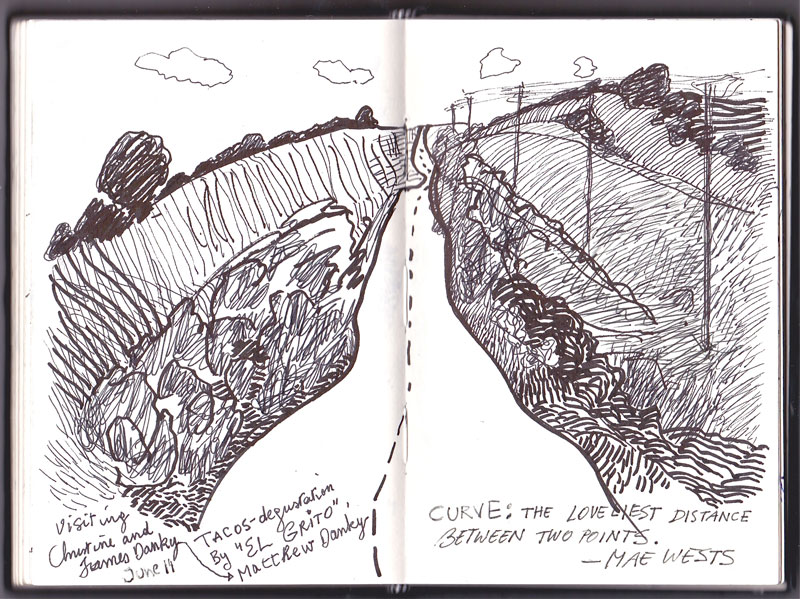 Visiting
Christine and
James Danky
June 11
TACOS-degustation
By "EL GRITO",
Matthew Danky
CURVE: THE LOVELIEST DISTANCE
BETWEEN TWO POINTS.
—MAE WESTS